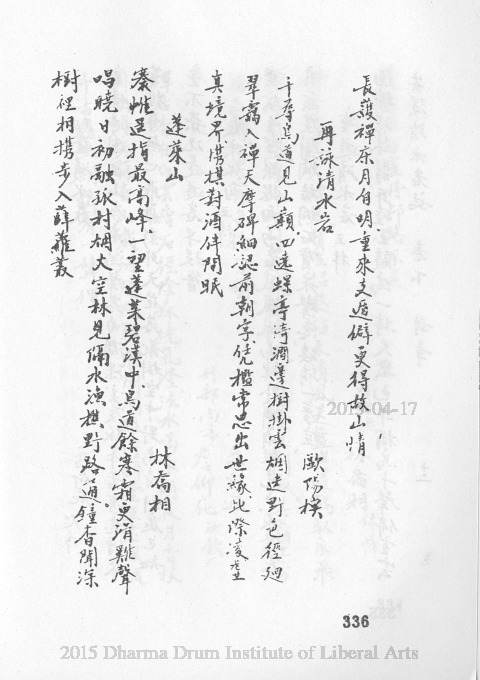 長護禪床月自明重來支遁癖更得故山情
再詠清水岩
歐陽樸
千尋鳥道見山巔四邊蝶亭淌澗邊樹掛雲烟迷野色徑廻
翠靄入禪天摩碑細認前朝字凭檻常思出世緣此際凌虛
真境界携棋對酒伴閒眠
蓬萊山
林喬相
褰帷遥指最高峰一望蓬萊碧漢中鳥道餘寒霜更消雞聲
唱曉日初融孤村烟火空林見隔水漁樵野路通鐘杳聞深
樹裡相携步入薜蘿叢
2015-04-17
336
2015 Dharma Drum Institute of Liberal Arts